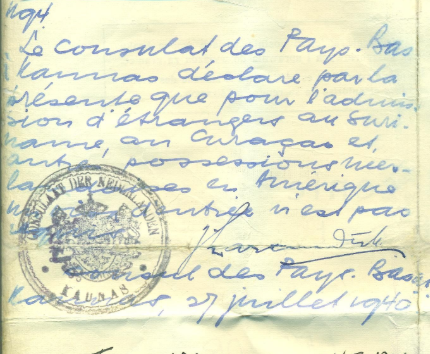 1941
Le Consulat des Pays-Bas
Kaunas déclare par la
présente que pour l'admis
sion d'étrangers au Suri-
name, au Curaçao et
autres possessions néer-
landaises en Amérique
entrée n'est pas
CONSULAAT DER NEDERLANDEN
KAUNAS
Consul des Pays-Bas
Kaunas, 27 juillet 1940